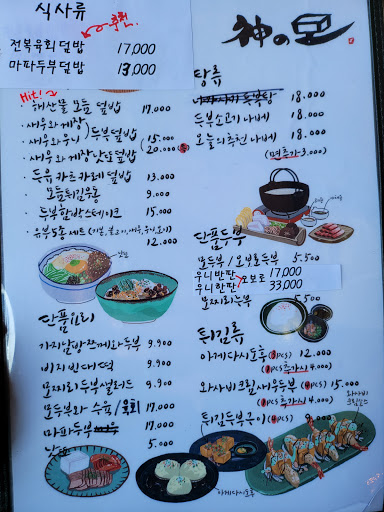 식사류
추천
전복육회덮밥 17,000
마파두부덮밥 13,000
Hit!
해산물 모듬 덮밥 17.000
· 새우와 게장
· 새우와 우니 두부덮밥 15.000
· 새우와 게장낫또덮밥 20.000
· 두유 카츠카레 덮밥 13.000
· 모듬튀김우동 9.000
· 두부함박스테이크 15.000
· 유부5종세트
12.000
단품요리
가지날방쯔케와두부 9.900
비지빈대떡 9.900
모찌리두부샐러드 9.900
모두부와 수육/육회 17.000
마파두부 17.000
낫또 5.000
神の豆
탕류
18.000
두부소고기나베 18.000
오늘의추천나베 18.000
(면추가 3.000)
단품두부
모두부/오보로두부 5.500
우니반판 오보로 17,000
우니한판 33,000
모찌리두부 5.500
튀김류
아게다시도후 (pcs) 12.000
(pcs 추가시 4.000)
와사비크림새우두부 (pcs) 15.000
(pcs 추가시 4.000)
튀김두부 9.000
와사비
크림
아게다시도후